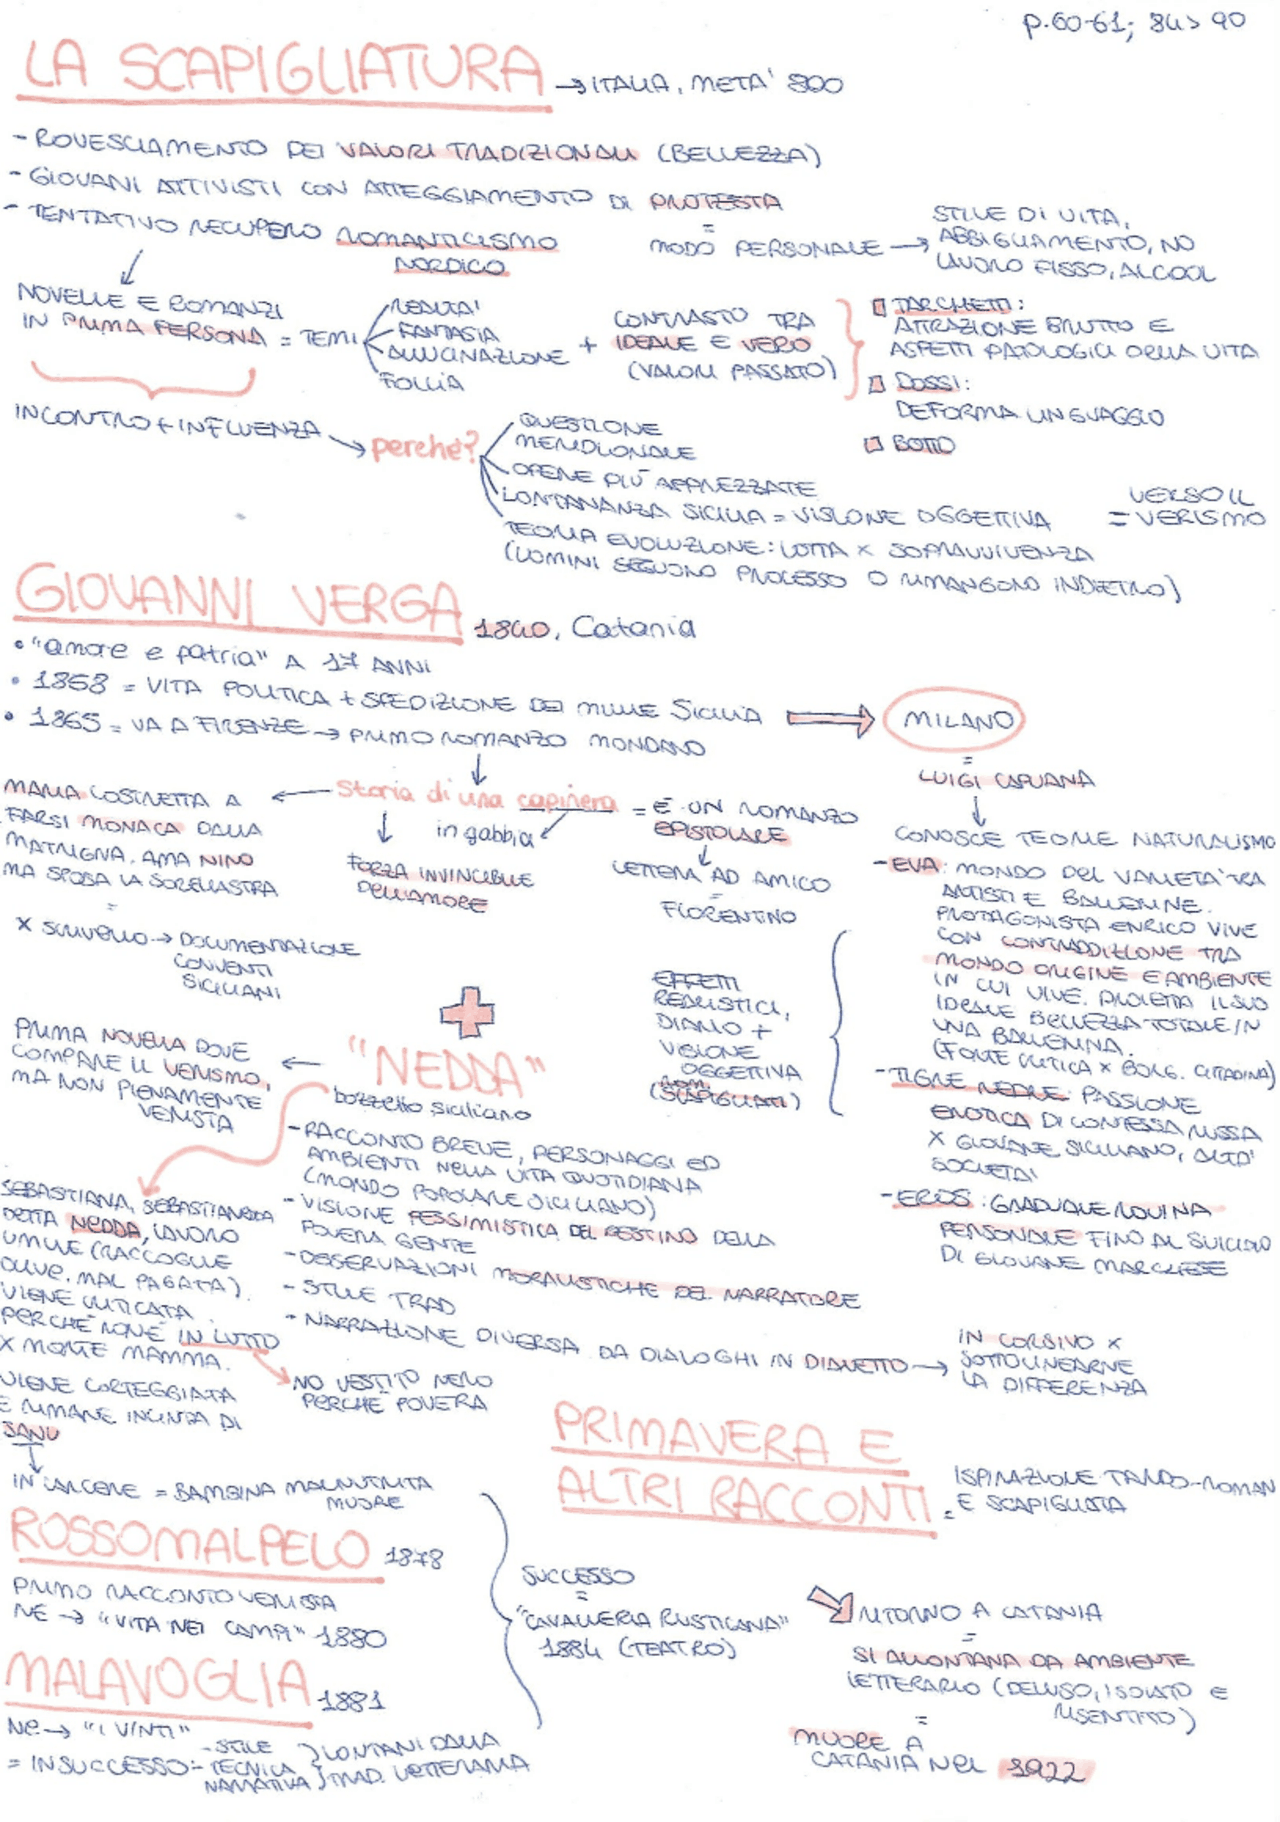 p.60-61; 84> 90
LA SCAPIGLIATURA → ITALIA, METÀ' 800
- ROVESCIAMENTO DEI VALORI TRADIZIONALI (BELLEZZA)
- GIOVANI ATTIVISTI CON ATTEGGIAMENTO DI PROTESTA
- TENTATIVO RECUPERO ROMANTICISMO
NORDICO
=
MODO PERSONALE → STILE DI VITA,
ABBIGLIAMENTO, NO
LAVORO FISSO, ALCOOL
↓
NOVELLE E ROMANZI
IN PRIMA PERSONA = TEMI
REALTA'
FANTASIA
ALLUCINAZIONE
FOLLIA
+
CONTRASTO TRA
IDEALE E VERO
(VALORI PASSATO)
TARCHETTI:
ATTRAZIONE BRUTTO E
ASPETTI PATOLOGICI DELLA VITA
DOSSI:
DEFORMA LINGUAGGIO
BOITO
INCONTRO + INFLUENZA → perché?
QUESTIONE
MERIDIONALE
OPERE PIÙ APPREZZATE
LONTANANZA SICILIA = VISIONE OGGETTIVA
TEORIA EVOLUZIONE: LOTTA X SOPRAVVIVENZA
(UOMINI SEGUONO PROCESSO O RIMANGONO INDIETRO)
VERSO IL
= VERISMO
GIOVANNI VERGA 1840, Catania
• "amore e patria" A 17 ANNI
• 1858 = VITA POLITICA + SPEDIZIONE DEI MILLE SICILIA ⇒ MILANO
• 1865 = VA A FIRENZE → PRIMO ROMANZO MONDANO
↓
Storia di una capinera = È UN ROMANZO
EPISTOLARE
↓
LETTERA AD AMICO
=
FIORENTINO
in gabbia
FORZA INVINCIBILE
DELL'AMORE
MARIA COSTRETTA A
FARSI MONACA DALLA
MATRIGNA. AMA NINO
MA SPOSA LA SORELLASTRA
=
X SCRIVERLO → DOCUMENTAZIONE
CONVENTI
SICILIANI
EFFETTI
REALISTICI,
DIARIO +
VISIONE
OGGETTIVA
(rom. SCAPIGLIATI)
=
LUIGI CAPUANA
↓
CONOSCE TEORIE NATURALISMO
- EVA: MONDO DEL VARIETÀ' TRA
ARTISTI E BALLERINE.
PROTAGONISTA ENRICO VIVE
CON CONTRADDIZIONE TRA
MONDO ORIGINE E AMBIENTE
IN CUI VIVE. PROIETTA IL SUO
IDEALE BELLEZZA TOTALE IN
UNA BALLERINA.
(FORTE CRITICA X BORG. CITTADINA)
- TIGRE REALE: PASSIONE
EROTICA DI CONTESSA RUSSA
X GIOVANE SICILIANO, ALTA'
SOCIETA'
- EROS: GRADUALE ROVINA
PERSONALE FINO AL SUICIDIO
DI GIOVANE MARCHESE
+
"NEDDA"
bozzetto siciliano
PRIMA NOVELLA DOVE
COMPARE IL VERISMO,
MA NON PIENAMENTE
VERISTA
- RACCONTO BREVE, PERSONAGGI ED
AMBIENTI NELLA VITA QUOTIDIANA
(MONDO POPOLARE SICILIANO)
- VISIONE PESSIMISTICA DEL DESTINO DELLA
POVERA GENTE
- OSSERVAZIONI MORALISTICHE DEL NARRATORE
- STILE TRAD
- NARRAZIONE DIVERSA DA DIALOGHI IN DIALETTO → IN CORSIVO X
SOTTOLINEARNE
LA DIFFERENZA
SEBASTIANA, SEBASTIANEDDA
DETTA NEDDA, LAVORO
UMILE (RACCOGLIE
OLIVE. MAL PAGATA).
VIENE CRITICATA
PERCHÉ NON È IN LUTTO
X MORTE MAMMA.
NO VESTITO NERO
PERCHÉ POVERA
VIENE CORTEGGIATA
E RIMANE INCINTA DI
JANU
↓
IN CARCERE = BAMBINA MALNUTRITA
MUORE
PRIMAVERA E
ALTRI RACCONTI = ISPIRAZIONE TARDO-ROMAN
E SCAPIGLIATA
ROSSOMALPELO 1878
PRIMO RACCONTO VERISTA
NE → "VITA NEI CAMPI" 1880
MALAVOGLIA 1881
NE → "I VINTI"
= INSUCCESSO: - STILE
- TECNICA
NARRATIVA
LONTANI DALLA
TRAD. LETTERARIA
SUCCESSO
=
"CAVALLERIA RUSTICANA"
1884 (TEATRO)
RITORNO A CATANIA
=
SI ALLONTANA DA AMBIENTE
LETTERARIO (DELUSO, ISOLATO E
RISENTITO)
=
MUORE A
CATANIA NEL 1922